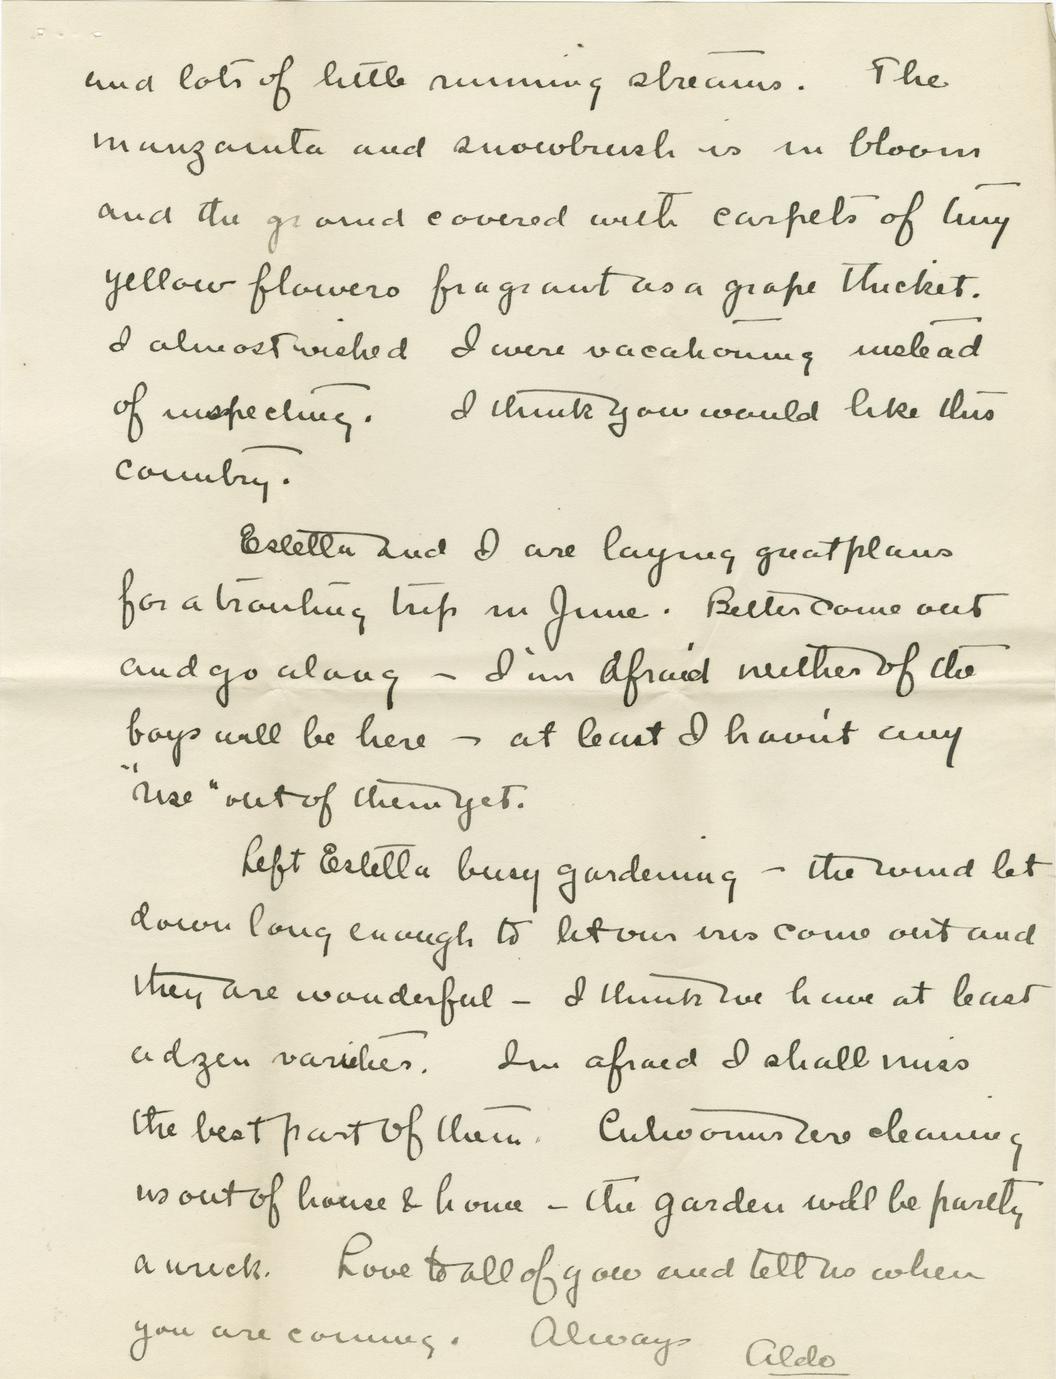 and lots of little running streams. The
manzanita and snowbrush is in bloom
and the ground covered with carpets of tiny
yellow flowers fragrant as a grape thicket.
I almost wished I were vacationing instead
of inspecting. I think you would like this
country.
Estella and I are laying great plans
for a trouting trip in June. Better come out
and go along – I'm afraid neither of the
boys will be here – at least I hav'nt any
"rise" out of them yet.
Left Estella busy gardening – the wind let
down long enough to let our iris come out and
they are wonderful – I think we have at least
a dzen varities. Im afraid I shall miss
the best part of them. Cutworms are cleaning
us out of house & home – the garden will be partly
a wreck. Love to all of you and tell us when
you are coming. Always
Aldo